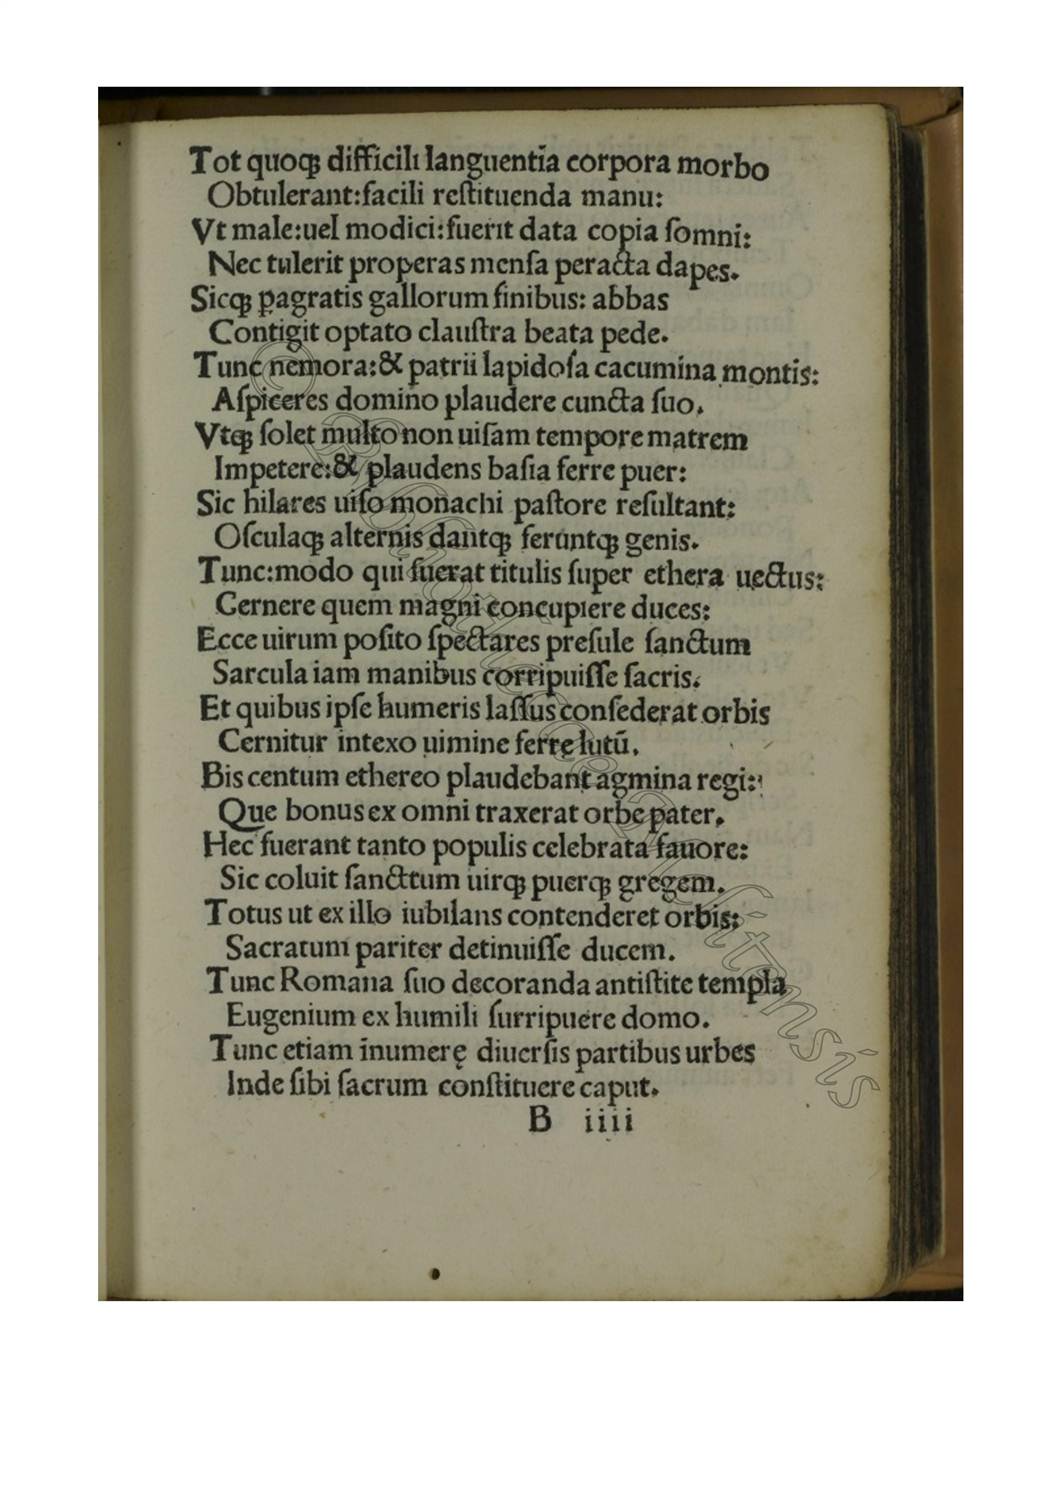 Tot quoqꝫ difficili languentia corpora morbo
Obtulerant:facili reſtituenda manu:
Vt male:uel modici:fuerit data copia ſomni:
Nec tulerit properas menſa peracta dapes.
Sicqꝫ ꝑagratis gallorum finibus: abbas
Contigit optato clauſtra beata pede.
Tunc nemora:& patrii lapidoſa cacumina montis:
Aſpiceres domino plaudere cuncta ſuo.
Vtqꝫ ſolet multo non uiſam tempore matrem
Impetere:& plaudens baſia ferre puer:
Sic hilares uiſo monachi paſtore reſultant:
Oſculaqꝫ alternis dantqꝫ feruntqꝫ genis.
Tunc:modo qui fuerat titulis ſuper ethera uectus:
Cernere quem magni concupiere duces:
Ecce uirum poſito ſpectares preſule ſanctum
Sarcula iam manibus corripuiſſe ſacris.
Et quibus ipſe humeris laſſus conſederat orbis
Cernitur intexo uimine ferre lutū.
Bis centum ethereo plaudebant agmina regi:
Que bonus ex omni traxerat orbe pater.
Hec fuerant tanto populis celebrata fauore:
Sic coluit ſancttum uirqꝫ puerqꝫ gregem.
Totus ut ex illo iubilans contenderet orbis:
Sacratum pariter detinuiſſe ducem.
Tunc Romana ſuo decoranda antiſtite templa
Eugenium ex humili ſurripuere domo.
Tunc etiam īnumerę diuerſis partibus urbes
Inde ſibi ſacrum conſtituere caput.
B iiii